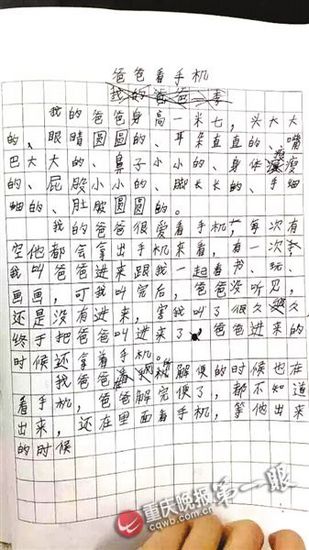 爸爸看手机
我的爸爸
我的爸爸身高一米七,头大大
的、眼睛圆圆的、耳朵直直的、嘴
巴大大的、鼻子小小的、身体瘦瘦
的、屁股小小的、脚长长的、手细
细的、肚脐圆圆的。
我的爸爸很爱看手机,每次有
空他都会拿出手机来看,有一次
我叫爸爸进来跟我一起看书、玩、
画画,可我叫完后,爸爸没听见,
还是没有进来,害我叫了很久
终于把爸爸叫进来了,爸爸进来的
时候还拿着手机。
我爸爸解便的时候也在
看手机,爸爸解完便了,都不知道
出来,还在里面看手机,等他出来
的时候
重庆晚报第一眼
www.cqwb.com.cn